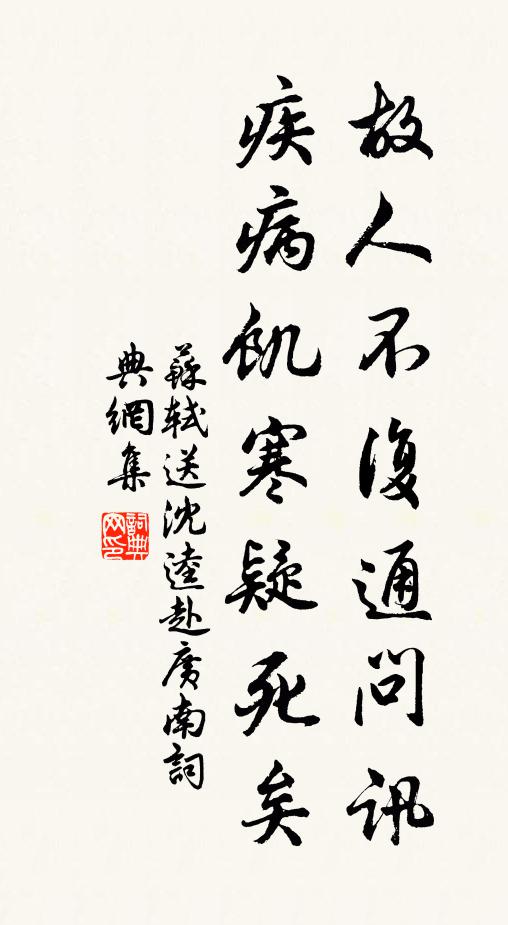 故人不復通問訊
疾病飢寒疑死矣
蘇軾送沈逵赴廣南詞
典網集
詞典
网印